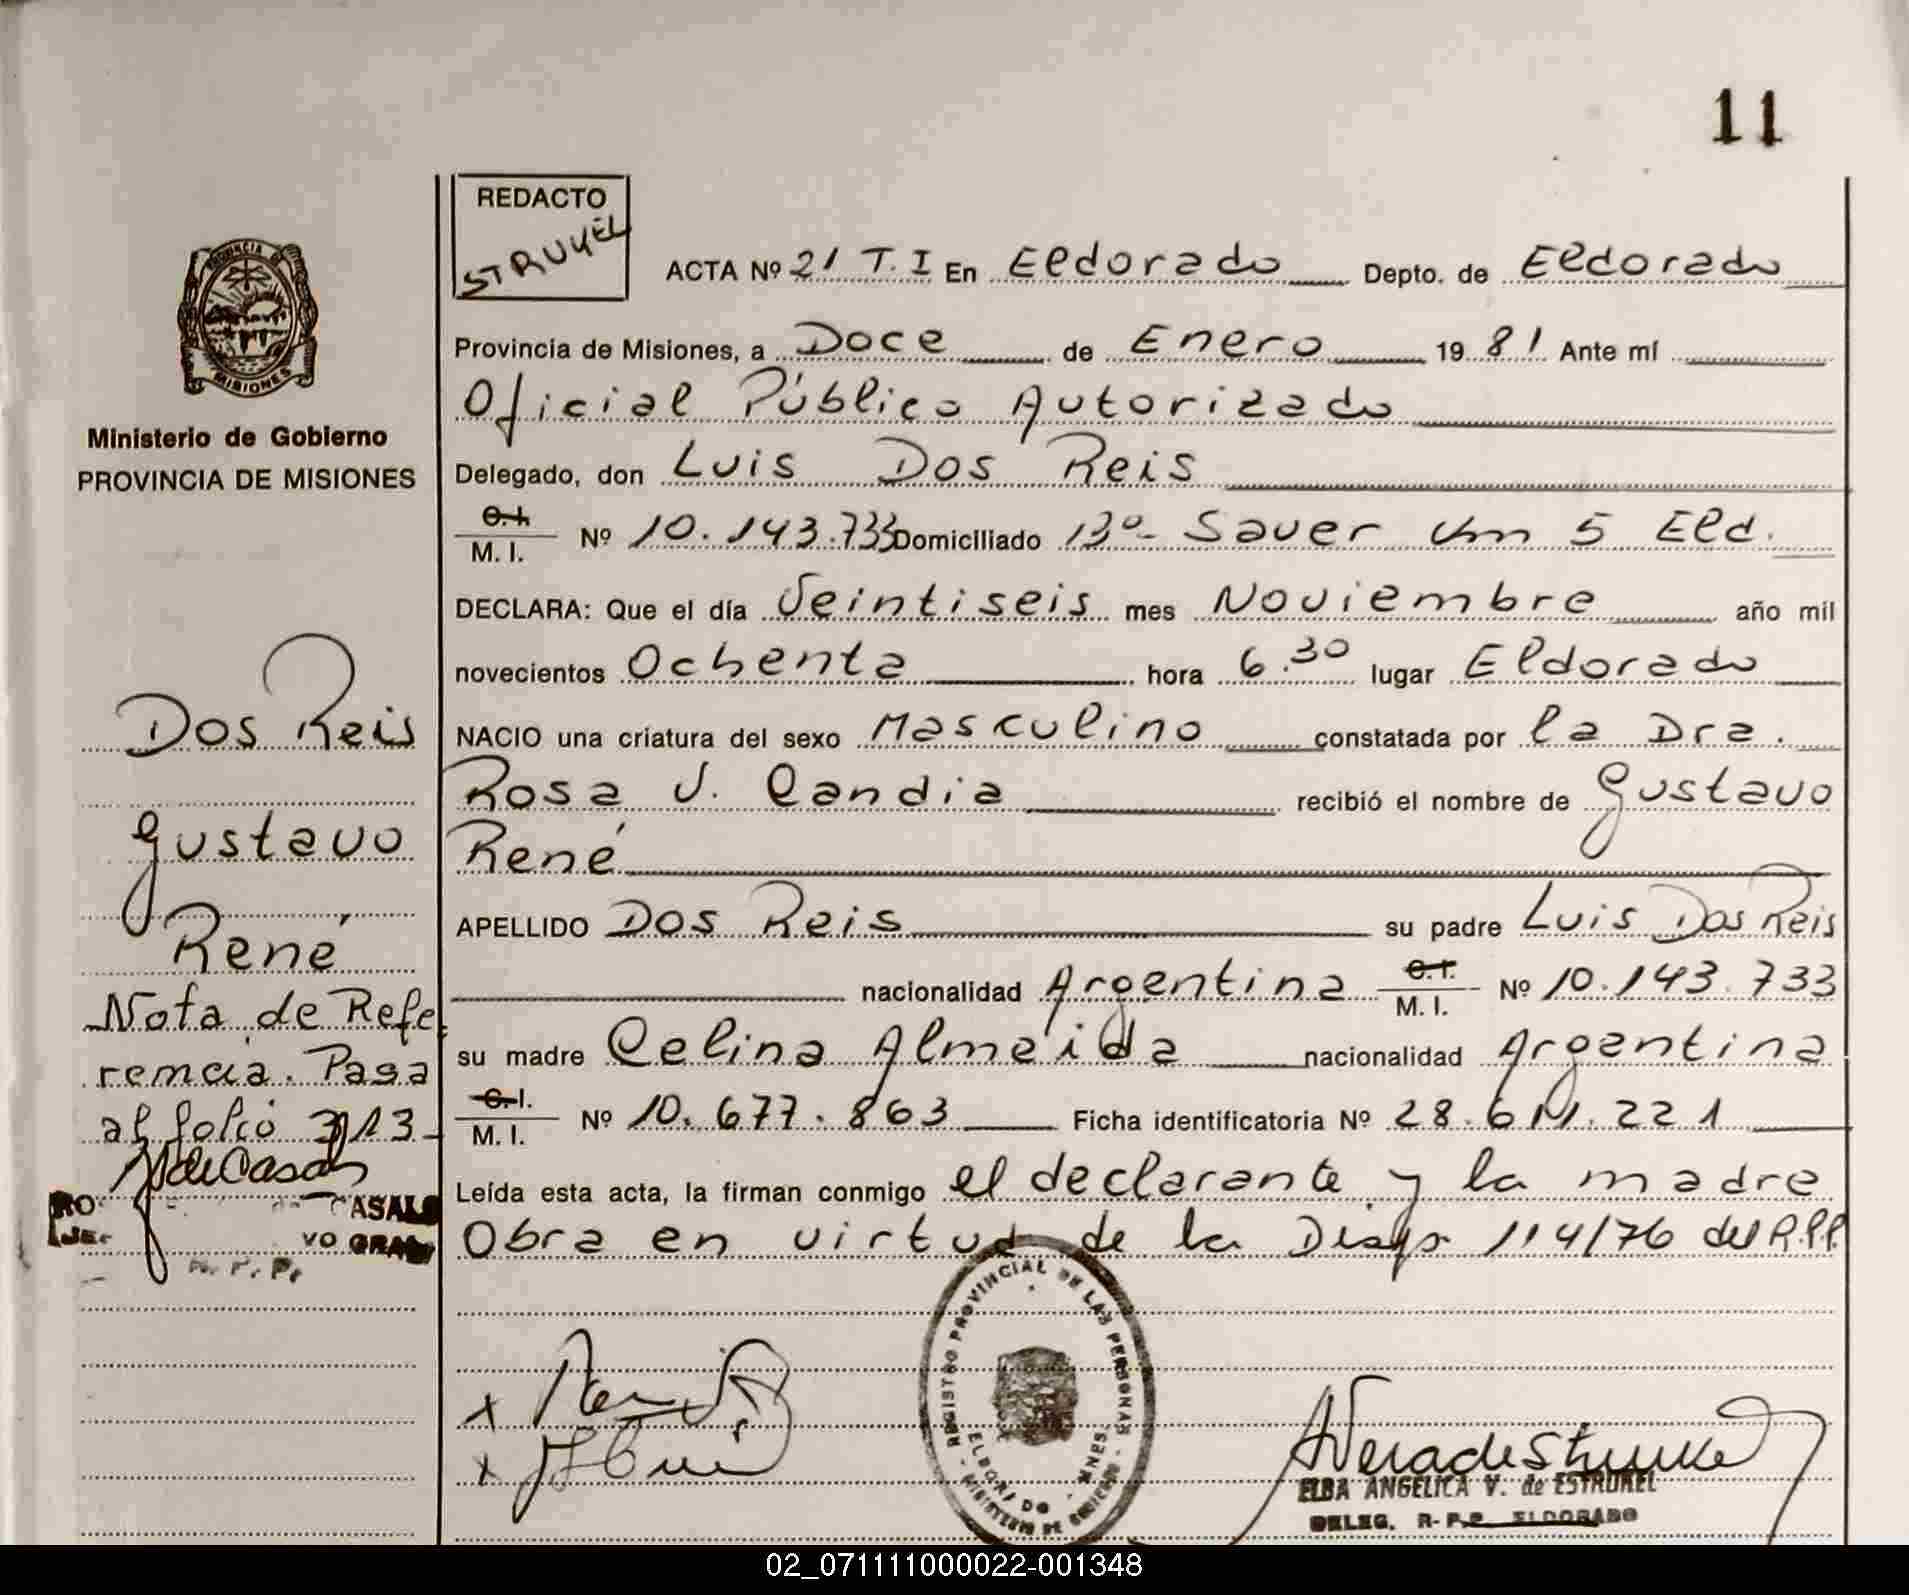 11
REDACTO
STRUKEL
PROVINCIA DE
MISIONES
Ministerio de Gobierno
PROVINCIA DE MISIONES
ACTA Nº 21 T. I En Eldorado Depto. de Eldorado
Provincia de Misiones, a Doce de Enero 1981 Ante mí
Oficial Público Autorizado
Delegado, don Luis Dos Reis
C.I. M. I. Nº 10.143.733 Domiciliado 13º- Sauer Km 5 Eld.
DECLARA: Que el día Veintiseis mes Noviembre año mil
novecientos Ochenta hora 6.30 lugar Eldorado
NACIO una criatura del sexo Masculino constatada por la Dra.
Rosa V. Candia recibió el nombre de Gustavo
René
APELLIDO Dos Reis su padre Luis Dos Reis
nacionalidad Argentina C.I. M. I. Nº 10.143.733
su madre Celina Almeida nacionalidad Argentina
C.I. M. I. Nº 10.677.863 Ficha identificatoria Nº 28.611.221
Leída esta acta, la firman conmigo el declarante y la madre
Obra en virtud de la Disp. 114/76 del R.P.P.
Dos Reis
Gustavo
René
Nota de Refe
rencia. Pasa
al folio 313-
CASALS
VO GRAL
REGISTRO PROVINCIAL DE LAS PERSONAS
ELDORADO
ELBA ANGELICA V. de ESTRUKEL
DELEG. R.P.P. ELDORADO
02_071111000022-001348